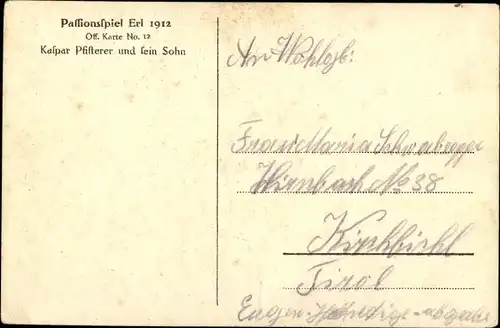 Paſſionsſpiel Erl 1912
Off. Karte No. 12
Kaſpar Pfiſterer und ſein Sohn
An Wohlgb:
Frau Maria Schwabegger
No 38
Kirchbichl
Tirol